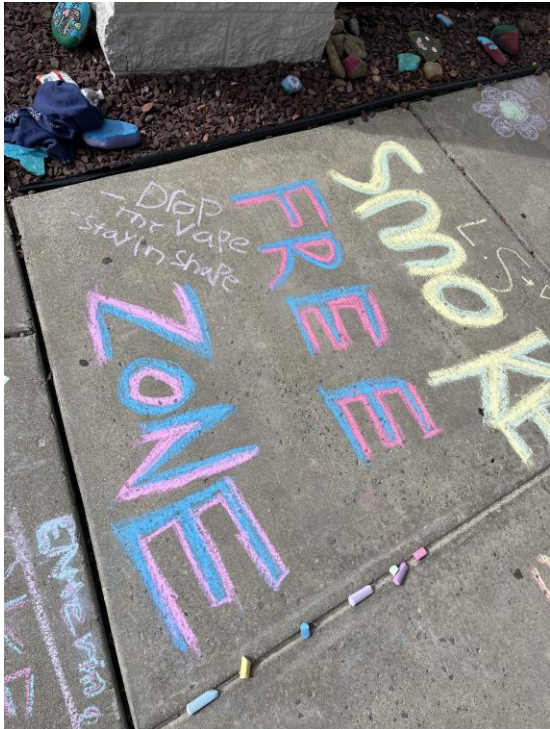 SMOKE
FREE
ZONE
- Drop
- The Vape
- Stay in Shape
Entering